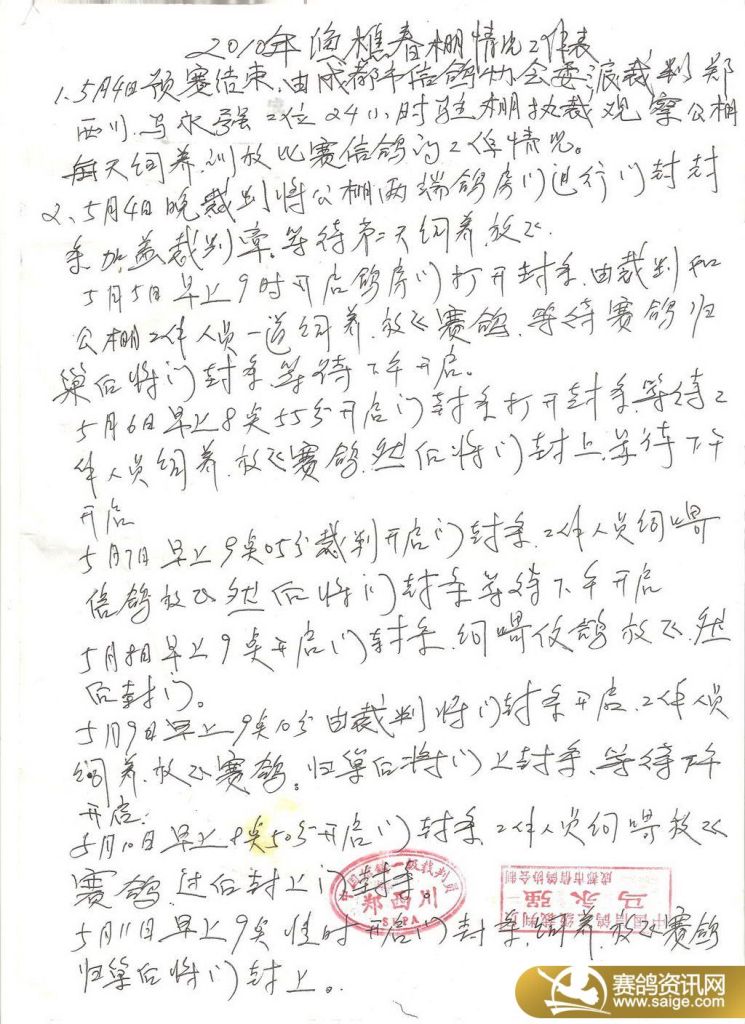 2010年 樵春棚情况工作表
1、5月4日预赛结束,由成都市信鸽协会委派裁判郑
西川、马永强二位24小时驻棚执裁观察公棚
每天饲养、训放比赛信鸽的工作情况。
2、5月4日晚裁判将公棚两端鸽房门进行门封封
条加盖裁判章,等待第二天饲养、放飞。
5月5日早上9时开启鸽房门打开封条,由裁判和
公棚工作人员一道饲养、放飞赛鸽,等待赛鸽归
巢后将门封条,等待下午开启。
5月6日早上8点55分开启门封条打开封条,等待工
作人员饲养、放飞赛鸽,然后将门封上,等待下午
开启
5月7日早上9点05分裁判开启门封条,工作人员饲喂
信鸽放飞然后将门封条等待下午开启
5月8日早上9点开启门封条,饲喂 鸽放飞,然
后封门。
5月9日早上9点10分由裁判将门封条开启,工作人员
饲养、放飞赛鸽。归巢后将门上封条、等待下午
开启.
5月10日早上8点50分开启门封条,工作人员饲喂放飞
赛鸽,过后封上门封条。
5月11日早上9点 时开启门封条,饲养、放飞赛鸽
归巢后将门封上。
中国信鸽一级裁判员
郑西川
中国信鸽 级裁判员
马永强
成都市信鸽协会制
赛鸽资讯网
www.saige.com